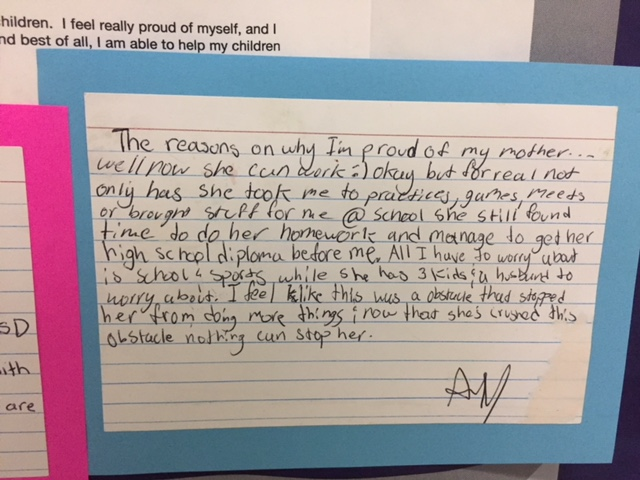 children. I feel really proud of myself, and I
nd best of all, I am able to help my children
The reasons on why I'm proud of my mother...
well now she can work =) okay but for real not
only has she took me to practices, games, meets
or brought stuff for me @ school she still found
time to do her homework and manage to get her
high school diploma before me. All I have to worry about
is school & sports while she has 3 kids & a husband to
worry about. I feel like this was a obstacle that stopped
her from doing more things & now that she's crushed this
obstacle nothing can stop her.
SD
ith
are